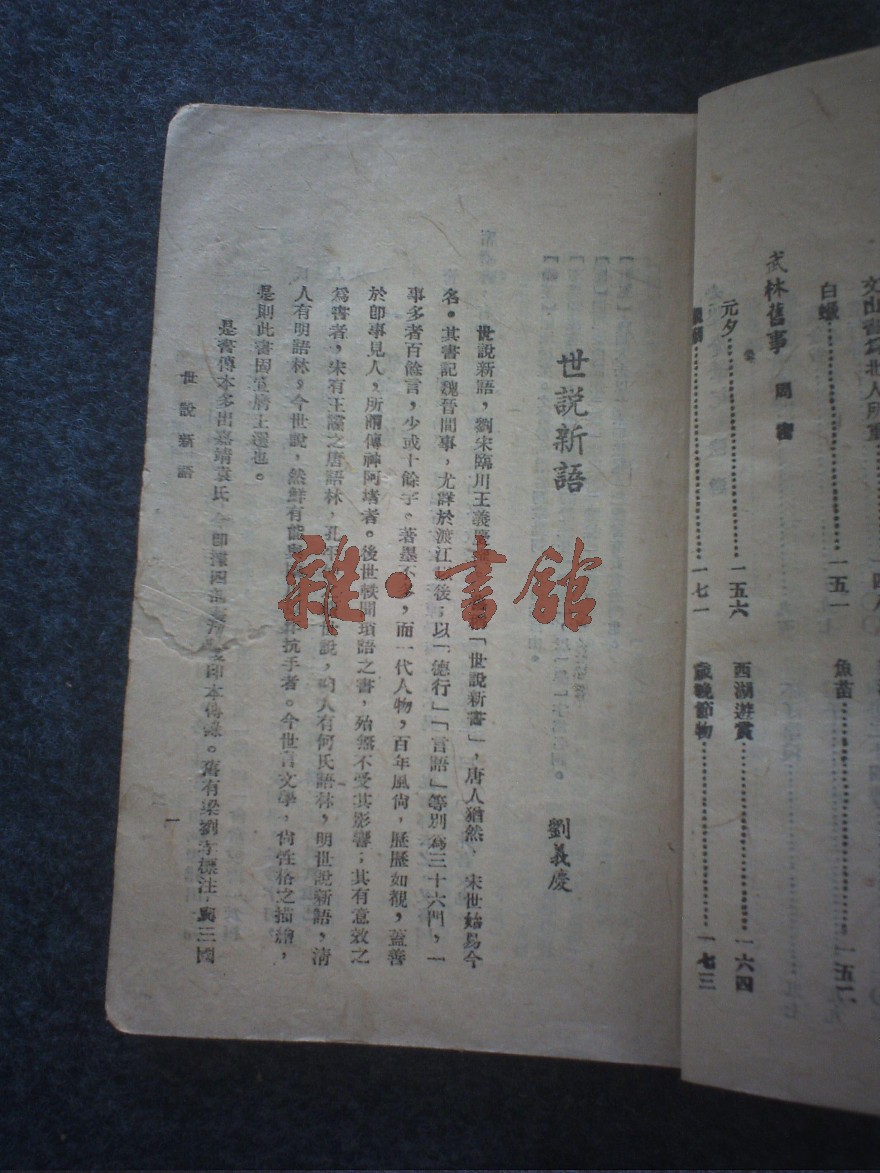 文山書為北人所重
白蠟……一五一
魚苗……一五二
武林舊事 周密
元夕……一五六
西湖遊賞……一六四
觀潮……一七一
歲晚節物……一七三
世說新語
劉義慶
世說新語，劉宋臨川王義慶「世說新書」，唐人猶然，宋世始易今
名。其書記魏晉間事，尤詳於渡江以後；以「德行」「言語」等別為三十六門，一
事多者百餘言，少或十餘字。著墨不多，而一代人物，百年風尚，歷歷如覩，蓋善
於卽事見人，所謂傳神阿堵者。後世軼聞瑣語之書，殆無不受其影響；其有意效之
為書者，宋有王讜之唐語林，孔平世說，明人有何氏語林，明世說新語，清
人有明語林，今世說，然鮮有能與抗手者。今世言文學，尙性格之描繪，
是則此書固宜膺上選也。
是書傳本多出嘉靖袁氏，今卽據四部影印本傳錄。舊有梁劉孝標注，與三國
世說新語
一
雜·書館